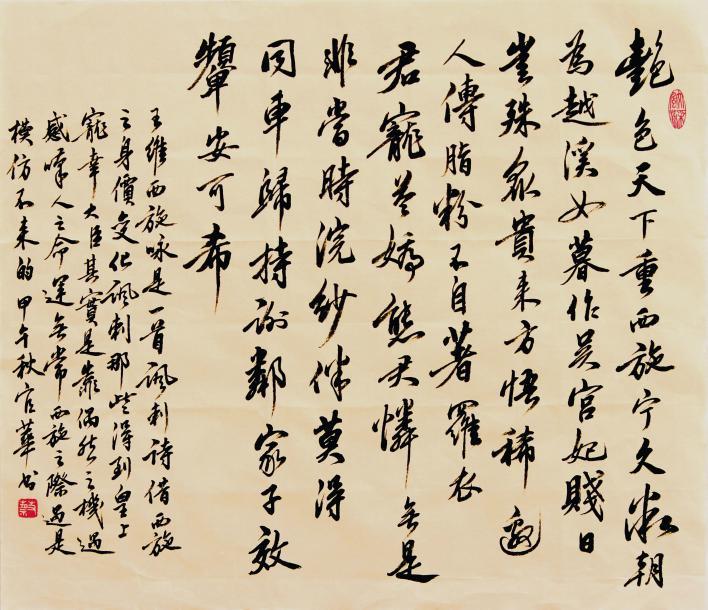 艷色天下重西施宁久微朝
為越溪女暮作吴宫妃賤日
豈殊眾貴来方悟稀邀
人傅脂粉不自著羅衣
君寵益嬌態君憐無是
非當時浣紗伴莫得
同車歸持謝鄰家子效
顰安可希
王維西施咏是一首諷刺詩借西施
之身價变化諷刺那些得到皇上
寵幸大臣其實是靠偶然之機遇
感嘆人之命運無常西施之際遇是
模仿不来的甲午秋官華书